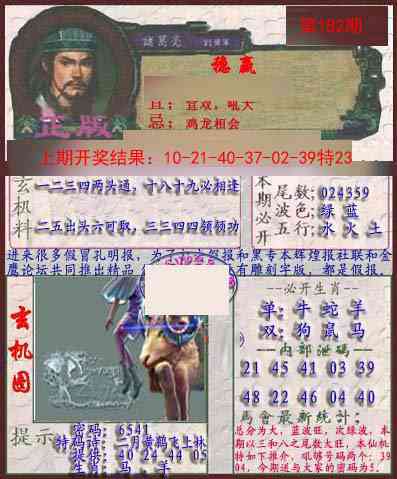 第182期
諸葛亮
稳赢
宜双，吼天
忌：鸡龙相会
正版
上期开奖结果：10-21-40-37-02-39特23
玄机料
一二三四两头通，十八十九必相逢
二五出头六可取，三三四四领领功
本期必开
尾数：024359
波色：绿 蓝
五行：水 火 土
进来很多假冒孔明报，为了
报和黑专本辉煌报社联和金
鹰论坛共同推出精品
有雕刻字版，都是假报。
玄机图
--必开生肖--
单：牛 蛇 羊
双：狗 鼠 马
--内部泄码--
21 45 41 03 39
48 22 46 04 40
馬會最新統計：
总分为大，蓝波旺，次绿波，本
期以三和八之尾数大旺，本仙机
特如下推介，吼够号码两个：39
04，今期送与大家的密码为5.
提示
密码：6541
特码话：二月黄鹤飞上林
提供：40 24 44 05
生肖：马、羊